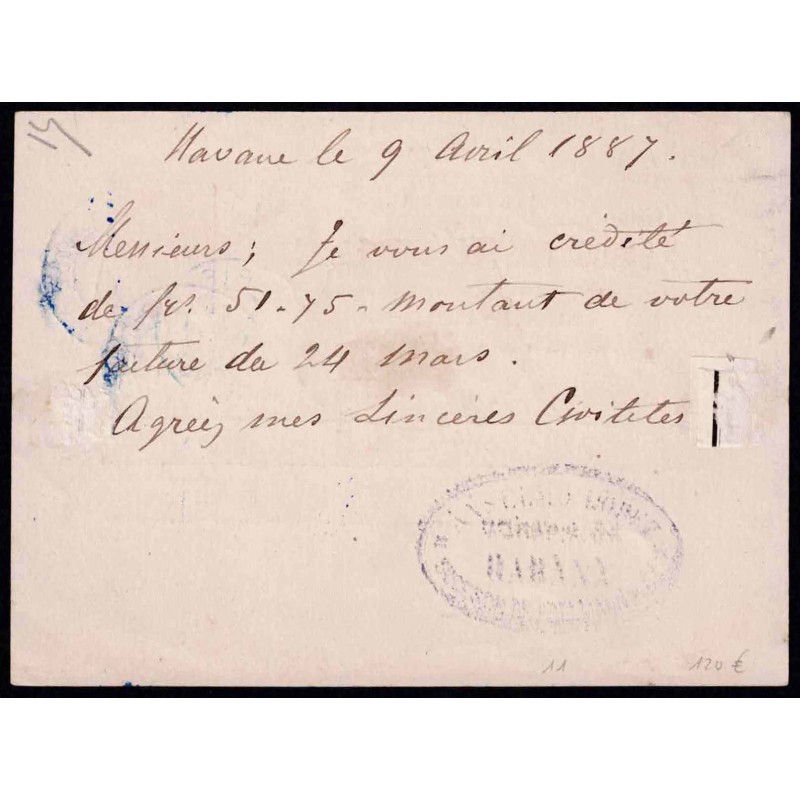 Havane le 9 Avril 1887.
Messieurs; Je vous ai crédité
de frs. 51-75- montant de votre
facture du 24 Mars.
Agréez mes Sincères Civilités
11
120 €